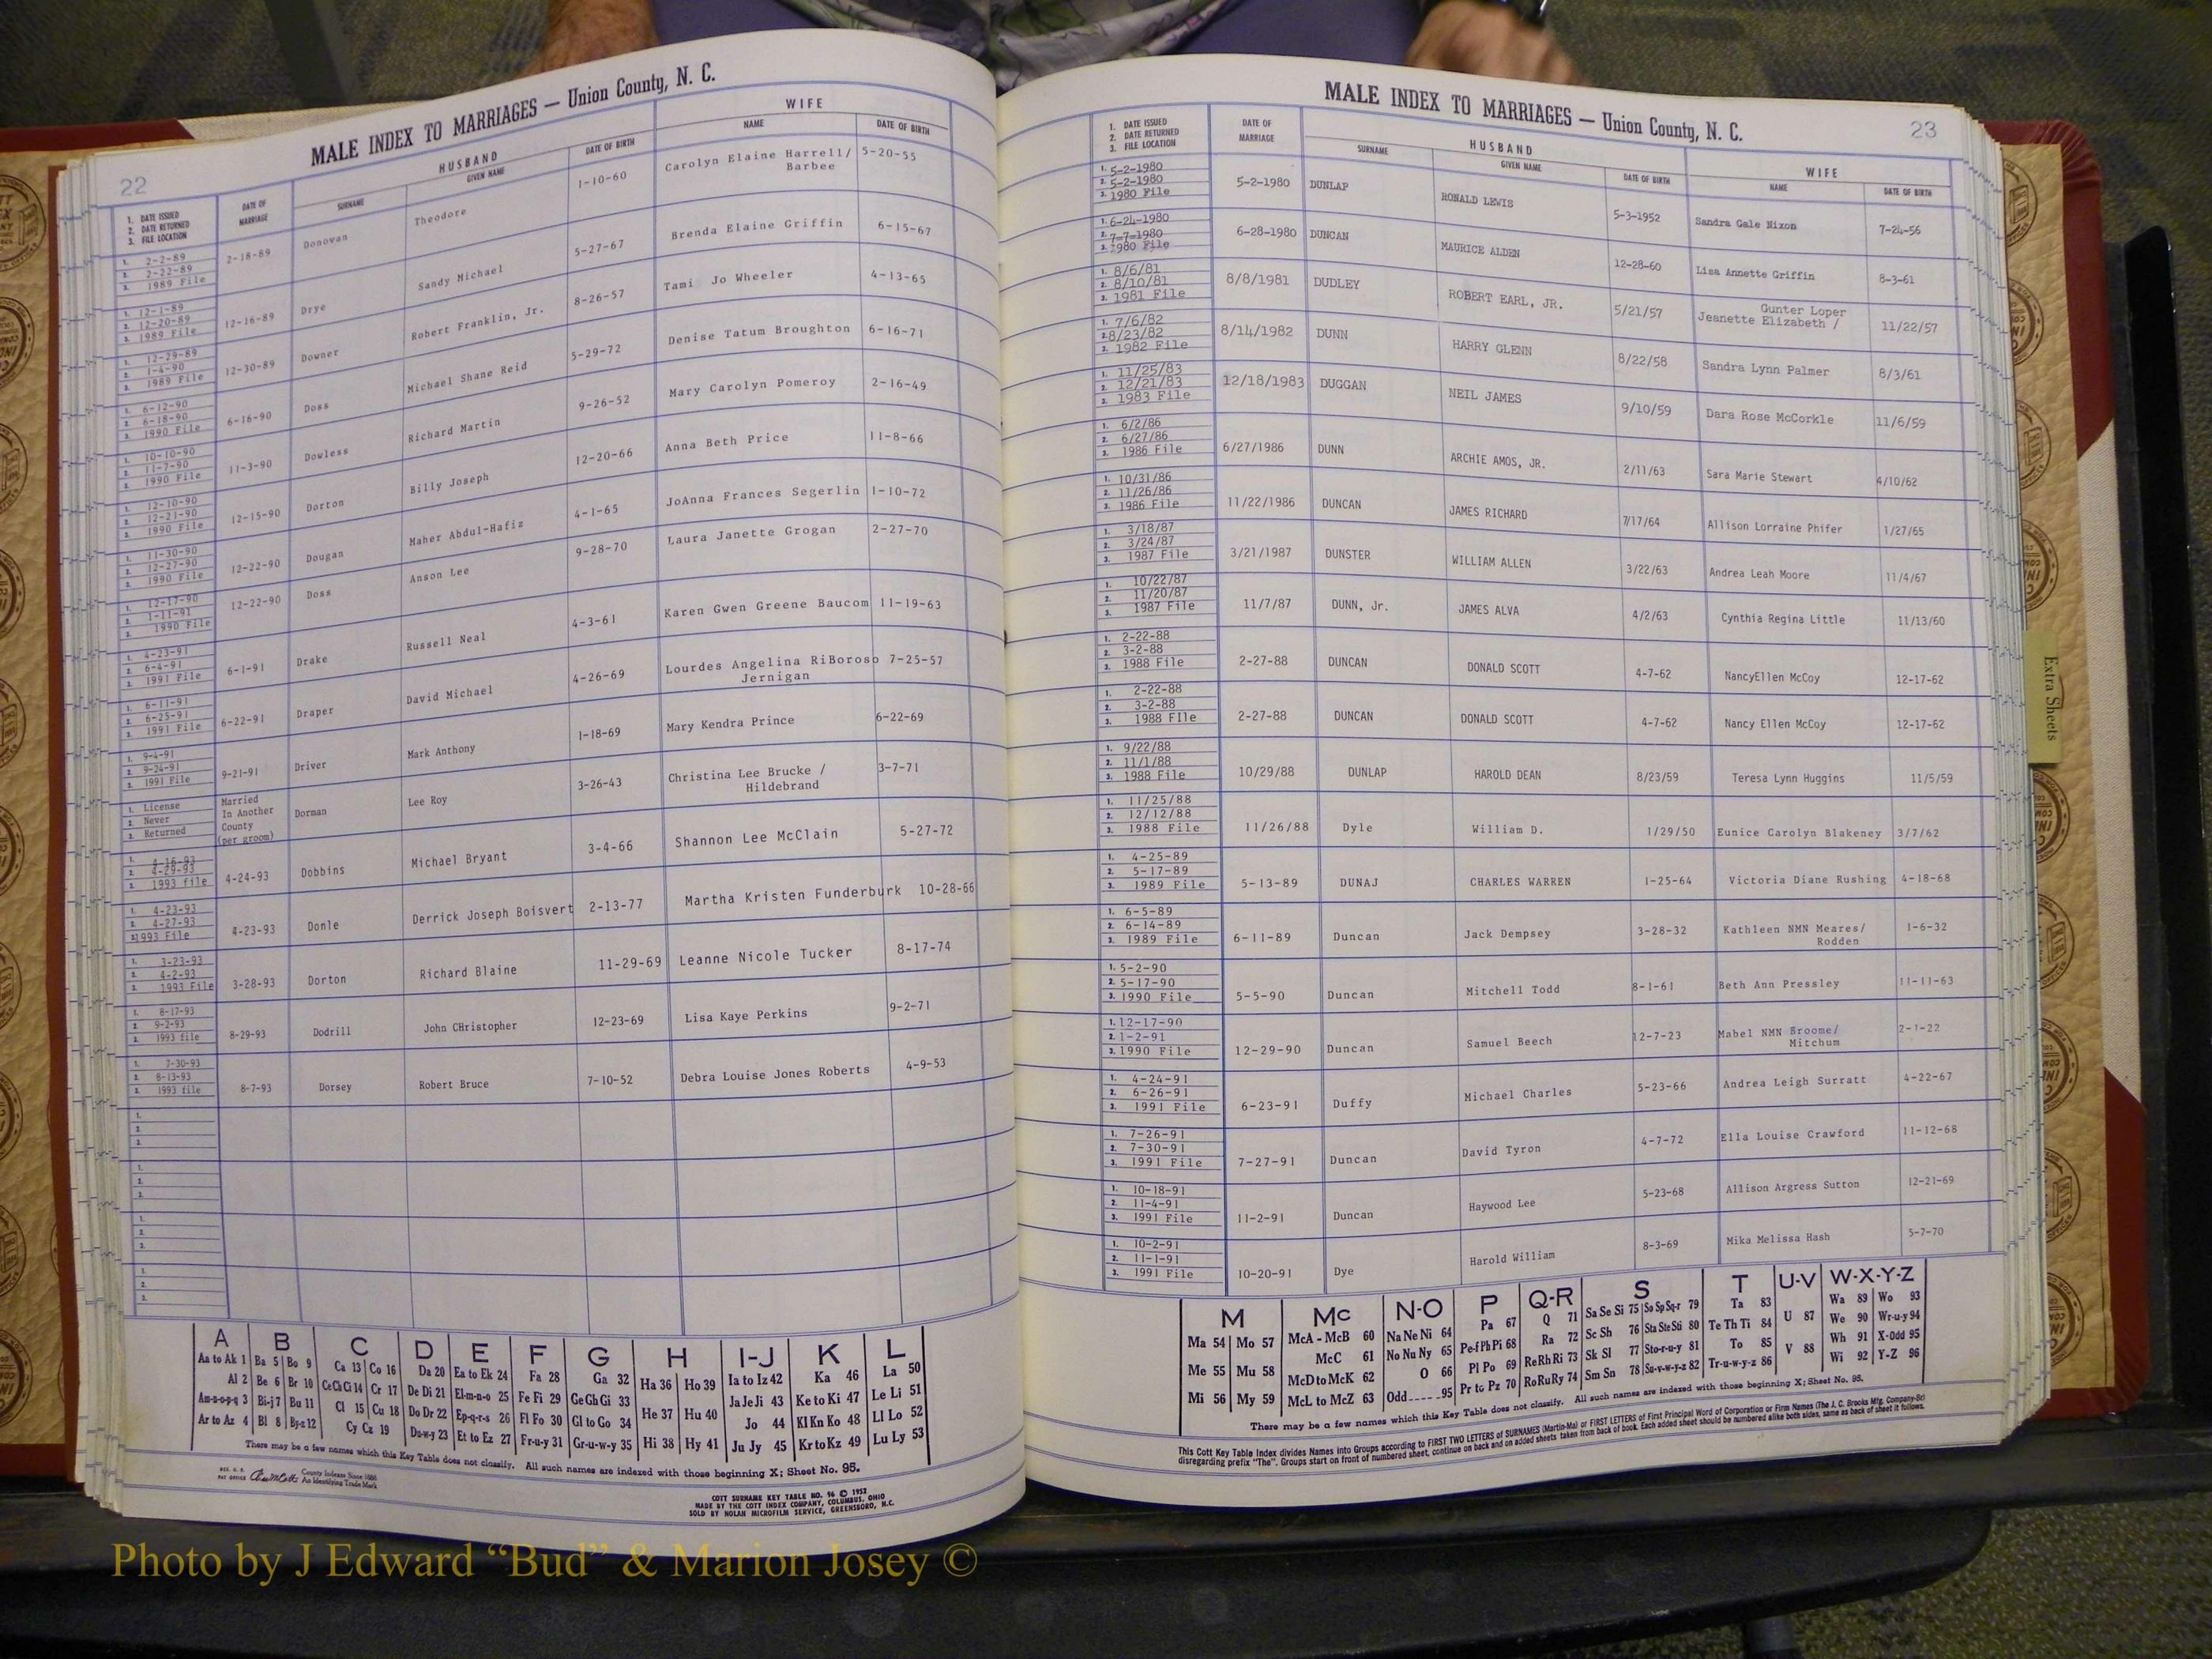 22
MALE INDEX TO MARRIAGES — Union County, N. C.
1. DATE ISSUED
2. DATE RETURNED
3. FILE LOCATION
DATE OF MARRIAGE
HUSBAND
SURNAME
GIVEN NAME
DATE OF BIRTH
WIFE
NAME
DATE OF BIRTH
1. 2-2-89
2. 2-22-89
3. 1989 File
2-18-89 Donovan Theodore 1-10-60 Carolyn Elaine Harrell/ 5-20-55
Barbee
1. 12-1-89
2. 12-20-89
3. 1989 File
12-16-89 Drye Sandy Michael 5-27-67 Brenda Elaine Griffin 6-15-67
1. 12-29-89
2. 1-4-90
3. 1989 File
12-30-89 Downer Robert Franklin, Jr. 8-26-57 Tami Jo Wheeler 4-13-65
1. 6-12-90
2. 6-18-90
3. 1990 File
6-16-90 Doss Michael Shane Reid 5-29-72 Denise Tatum Broughton 6-16-71
1. 10-10-90
2. 11-7-90
3. 1990 File
11-3-90 Dowless Richard Martin 9-26-52 Mary Carolyn Pomeroy 2-16-49
1. 12-10-90
2. 12-21-90
3. 1990 File
12-15-90 Dorton Billy Joseph 12-20-66 Anna Beth Price 11-8-66
1. 11-30-90
2. 12-27-90
3. 1990 File
12-22-90 Dougan Maher Abdul-Hafiz 4-1-65 JoAnna Frances Segerlin 1-10-72
1. 12-17-90
2. 1-11-91
3. 1990 File
12-22-90 Doss Anson Lee 9-28-70 Laura Janette Grogan 2-27-70
1. 4-23-91
2. 6-4-91
3. 1991 File
6-1-91 Drake Russell Neal 4-3-61 Karen Gwen Greene Baucom 11-19-63
1. 6-11-91
2. 6-25-91
3. 1991 File
6-22-91 Draper David Michael 4-26-69 Lourdes Angelina RiBoroso 7-25-57
Jernigan
1. 9-4-91
2. 9-24-91
3. 1991 File
9-21-91 Driver Mark Anthony 1-18-69 Mary Kendra Prince 6-22-69
1. License
2. Never
3. Returned
Married
In Another
County
(per groom)
Dorman Lee Roy 3-26-43 Christina Lee Brucke / 3-7-71
Hildebrand
1. 4-16-93
2. 4-29-93
3. 1993 file
4-24-93 Dobbins Michael Bryant 3-4-66 Shannon Lee McClain 5-27-72
1. 4-23-93
2. 4-27-93
3. 1993 File
4-23-93 Donle Derrick Joseph Boisvert 2-13-77 Martha Kristen Funderburk 10-28-66
1. 3-23-93
2. 4-2-93
3. 1993 File
3-28-93 Dorton Richard Blaine 11-29-69 Leanne Nicole Tucker 8-17-74
1. 8-17-93
2. 9-2-93
3. 1993 file
8-29-93 Dodrill John CHristopher 12-23-69 Lisa Kaye Perkins 9-2-71
1. 7-30-93
2. 8-13-93
3. 1993 file
8-7-93 Dorsey Robert Bruce 7-10-52 Debra Louise Jones Roberts 4-9-53
1.
2.
3.
1.
2.
3.
1.
2.
3.
1.
2.
3.
A B C D E F G H I-J K L
Aa to Ak 1 Ba 5 Bo 9 Ca 13 Co 16 Da 20 Ea to Ek 24 Fa 28 Ga 32 Ha 36 Ho 39 Ia to Iz 42 Ka 46 La 50
Al 2 Be 6 Br 10 Ce Ch Ci 14 Cr 17 De Di 21 El-m-n-o 25 Fe Fi 29 Ge Gh Gi 33 He 37 Hu 40 Ja Je Ji 43 Ke to Ki 47 Le Li 51
Am-n-o-p-q 3 Bi-j 7 Bu 11 Cl 15 Cu 18 Do Dr 22 Ep-q-r-s 26 Fl Fo 30 Gl to Go 34 Jo 44 Kl Kn Ko 48 Ll Lo 52
Ar to Az 4 Bl 8 By-z 12 Cy Cz 19 Du-w-y 23 Et to Ez 27 Fr-u-y 31 Gr-u-w-y 35 Hi 38 Hy 41 Ju Jy 45 Kr to Kz 49 Lu Ly 53
There may be a few names which this Key Table does not classify. All such names are indexed with those beginning X; Sheet No. 95.
REG. U. S.
PAT OFFICE
County Indexes Since 1888
An Identifying Trade Mark
COTT SURNAME KEY TABLE NO. 96 © 1952
MADE BY THE COTT INDEX COMPANY, COLUMBUS, OHIO
SOLD BY NOLAN MICROFILM SERVICE, GREENSBORO, N.C.
MALE INDEX TO MARRIAGES — Union County, N. C.
23
1. DATE ISSUED
2. DATE RETURNED
3. FILE LOCATION
DATE OF MARRIAGE
HUSBAND
SURNAME
GIVEN NAME
DATE OF BIRTH
WIFE
NAME
DATE OF BIRTH
1. 5-2-1980
2. 5-2-1980
3. 1980 File
5-2-1980 DUNLAP RONALD LEWIS 5-3-1952 Sandra Gale Nixon 7-24-56
1. 6-24-1980
2. 7-7-1980
3. 1980 File
6-28-1980 DUNCAN MAURICE ALDEN 12-28-60 Lisa Annette Griffin 8-3-61
1. 8/6/81
2. 8/10/81
3. 1981 File
8/8/1981 DUDLEY ROBERT EARL, JR. 5/21/57 Gunter Loper
Jeanette Elizabeth / 11/22/57
1. 7/6/82
2. 8/23/82
3. 1982 File
8/14/1982 DUNN HARRY GLENN 8/22/58 Sandra Lynn Palmer 8/3/61
1. 11/25/83
2. 12/21/83
3. 1983 File
12/18/1983 DUGGAN NEIL JAMES 9/10/59 Dara Rose McCorkle 11/6/59
1. 6/2/86
2. 6/27/86
3. 1986 File
6/27/1986 DUNN ARCHIE AMOS, JR. 2/11/63 Sara Marie Stewart 4/10/62
1. 10/31/86
2. 11/26/86
3. 1986 File
11/22/1986 DUNCAN JAMES RICHARD 7/17/64 Allison Lorraine Phifer 1/27/65
1. 3/18/87
2. 3/24/87
3. 1987 File
3/21/1987 DUNSTER WILLIAM ALLEN 3/22/63 Andrea Leah Moore 11/4/67
1. 10/22/87
2. 11/20/87
3. 1987 File
11/7/87 DUNN, Jr. JAMES ALVA 4/2/63 Cynthia Regina Little 11/13/60
1. 2-22-88
2. 3-2-88
3. 1988 File
2-27-88 DUNCAN DONALD SCOTT 4-7-62 NancyEllen McCoy 12-17-62
1. 2-22-88
2. 3-2-88
3. 1988 FIle
2-27-88 DUNCAN DONALD SCOTT 4-7-62 Nancy Ellen McCoy 12-17-62
1. 9/22/88
2. 11/1/88
3. 1988 File
10/29/88 DUNLAP HAROLD DEAN 8/23/59 Teresa Lynn Huggins 11/5/59
1. 11/25/88
2. 12/12/88
3. 1988 File
11/26/88 Dyle William D. 1/29/50 Eunice Carolyn Blakeney 3/7/62
1. 4-25-89
2. 5-17-89
3. 1989 File
5-13-89 DUNAJ CHARLES WARREN 1-25-64 Victoria Diane Rushing 4-18-68
1. 6-5-89
2. 6-14-89
3. 1989 File
6-11-89 Duncan Jack Dempsey 3-28-32 Kathleen NMN Meares/ 1-6-32
Rodden
1. 5-2-90
2. 5-17-90
3. 1990 File
5-5-90 Duncan Mitchell Todd 8-1-61 Beth Ann Pressley 11-11-63
1. 12-17-90
2. 1-2-91
3. 1990 File
12-29-90 Duncan Samuel Beech 12-7-23 Mabel NMN Broome/ 2-1-22
Mitchum
1. 4-24-91
2. 6-26-91
3. 1991 File
6-23-91 Duffy Michael Charles 5-23-66 Andrea Leigh Surratt 4-22-67
1. 7-26-91
2. 7-30-91
3. 1991 File
7-27-91 Duncan David Tyron 4-7-72 Ella Louise Crawford 11-12-68
1. 10-18-91
2. 11-4-91
3. 1991 File
11-2-91 Duncan Haywood Lee 5-23-68 Allison Argress Sutton 12-21-69
1. 10-2-91
2. 11-1-91
3. 1991 File
10-20-91 Dye Harold William 8-3-69 Mika Melissa Hash 5-7-70
M Mc N-O P Q-R S T U-V W-X-Y-Z
Ma 54 Mo 57 McA - McB 60 Na Ne Ni 64 Pa 67 Q 71 Sa Se Si 75 So Sp Sq-r 79 Ta 83 U 87 Wa 89 Wo 93
Me 55 Mu 58 McC 61 No Nu Ny 65 Pe-f Ph Pi 68 Ra 72 Sc Sh 76 Sta Ste Sti 80 Te Th Ti 84 We 90 Wr-u-y 94
McD to McK 62 O 66 Pl Po 69 Re Rh Ri 73 Sk Sl 77 Sto-r-u-y 81 To 85 V 88 Wh 91 X-Odd 95
Mi 56 My 59 McL to McZ 63 Odd 95 Pr to Pz 70 Ro Ru Ry 74 Sm Sn 78 Su-v-w-y-z 82 Tr-u-w-y-z 86 Wi 92 Y-Z 96
There may be a few names which this Key Table does not classify. All such names are indexed with those beginning X; Sheet No. 95.
This Cott Key Table Index divides Names into Groups according to FIRST TWO LETTERS of SURNAMES (Martin-Ma) or FIRST LETTERS of First Principal Word of Corporation or Firm Names (The J. C. Brooks Mfg. Company-Br)
disregarding prefix "The". Groups start on front of numbered sheet, continue on back and on added sheets taken from back of book. Each added sheet should be numbered alike both sides, same as back of sheet it follows.
Extra Sheets
Photo by J Edward “Bud” & Marion Josey ©